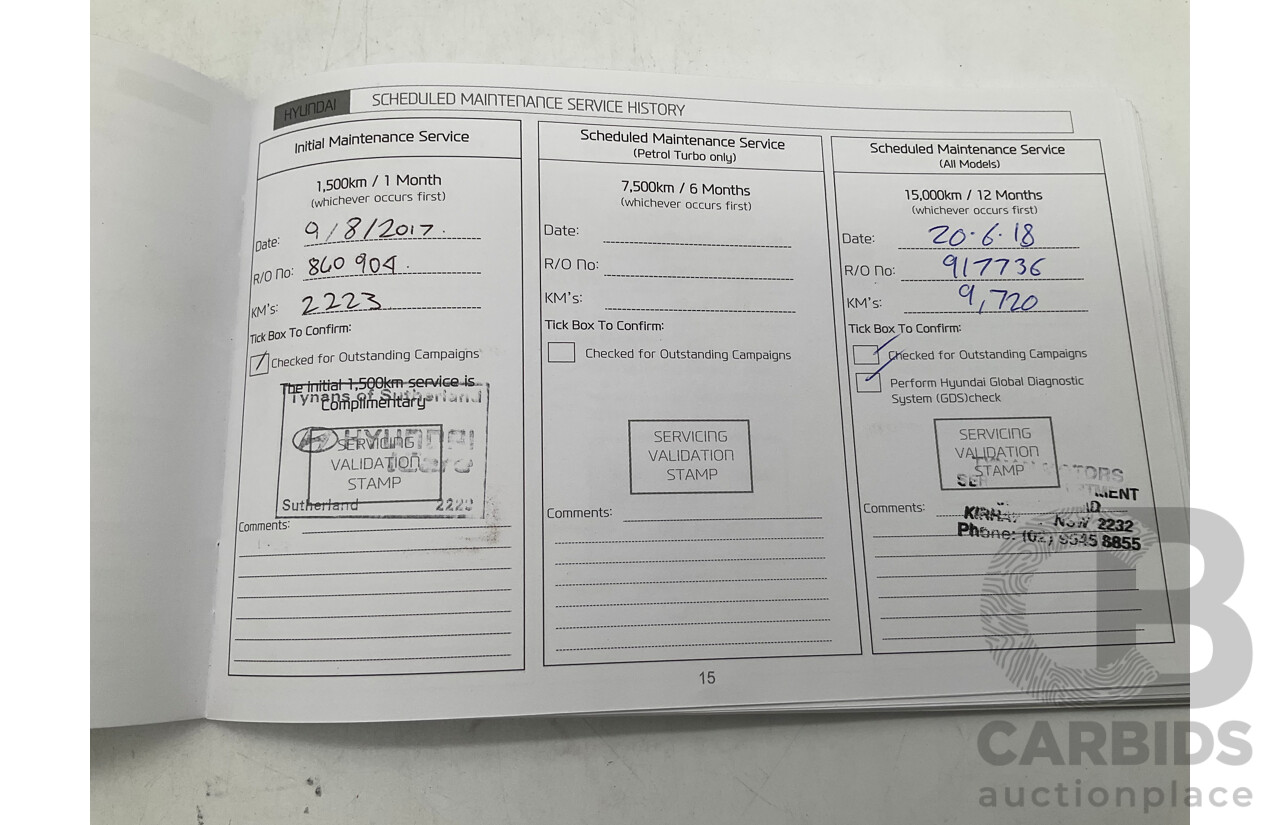 HYUNDAI SCHEDULED MAINTENANCE SERVICE HISTORY
Initial Maintenance Service
1,500km / 1 Month
(whichever occurs first)
Date: 9/8/2017.
R/O No: 860 904.
KM's: 2223
Tick Box To Confirm:
Checked for Outstanding Campaigns
The Initial 1,500km service is
Complimentary
Tynans of Sutherland
HYUNDAI
SERVICING
VALIDATION
STAMP
Sutherland 2223
Comments:
Scheduled Maintenance Service
(Petrol Turbo only)
7,500km / 6 Months
(whichever occurs first)
Date:
R/O No:
KM's:
Tick Box To Confirm:
Checked for Outstanding Campaigns
SERVICING
VALIDATION
STAMP
Comments:
Scheduled Maintenance Service
(All Models)
15,000km / 12 Months
(whichever occurs first)
Date: 20.6.18
R/O No: 917736
KM's: 9,720
Tick Box To Confirm:
Checked for Outstanding Campaigns
Perform Hyundai Global Diagnostic
System (GDS)check
SERVICING
VALIDATION
STAMP
NSW 2232
Phone: (02) 9545 8855
Comments:
15
CARBIDS
auctionplace